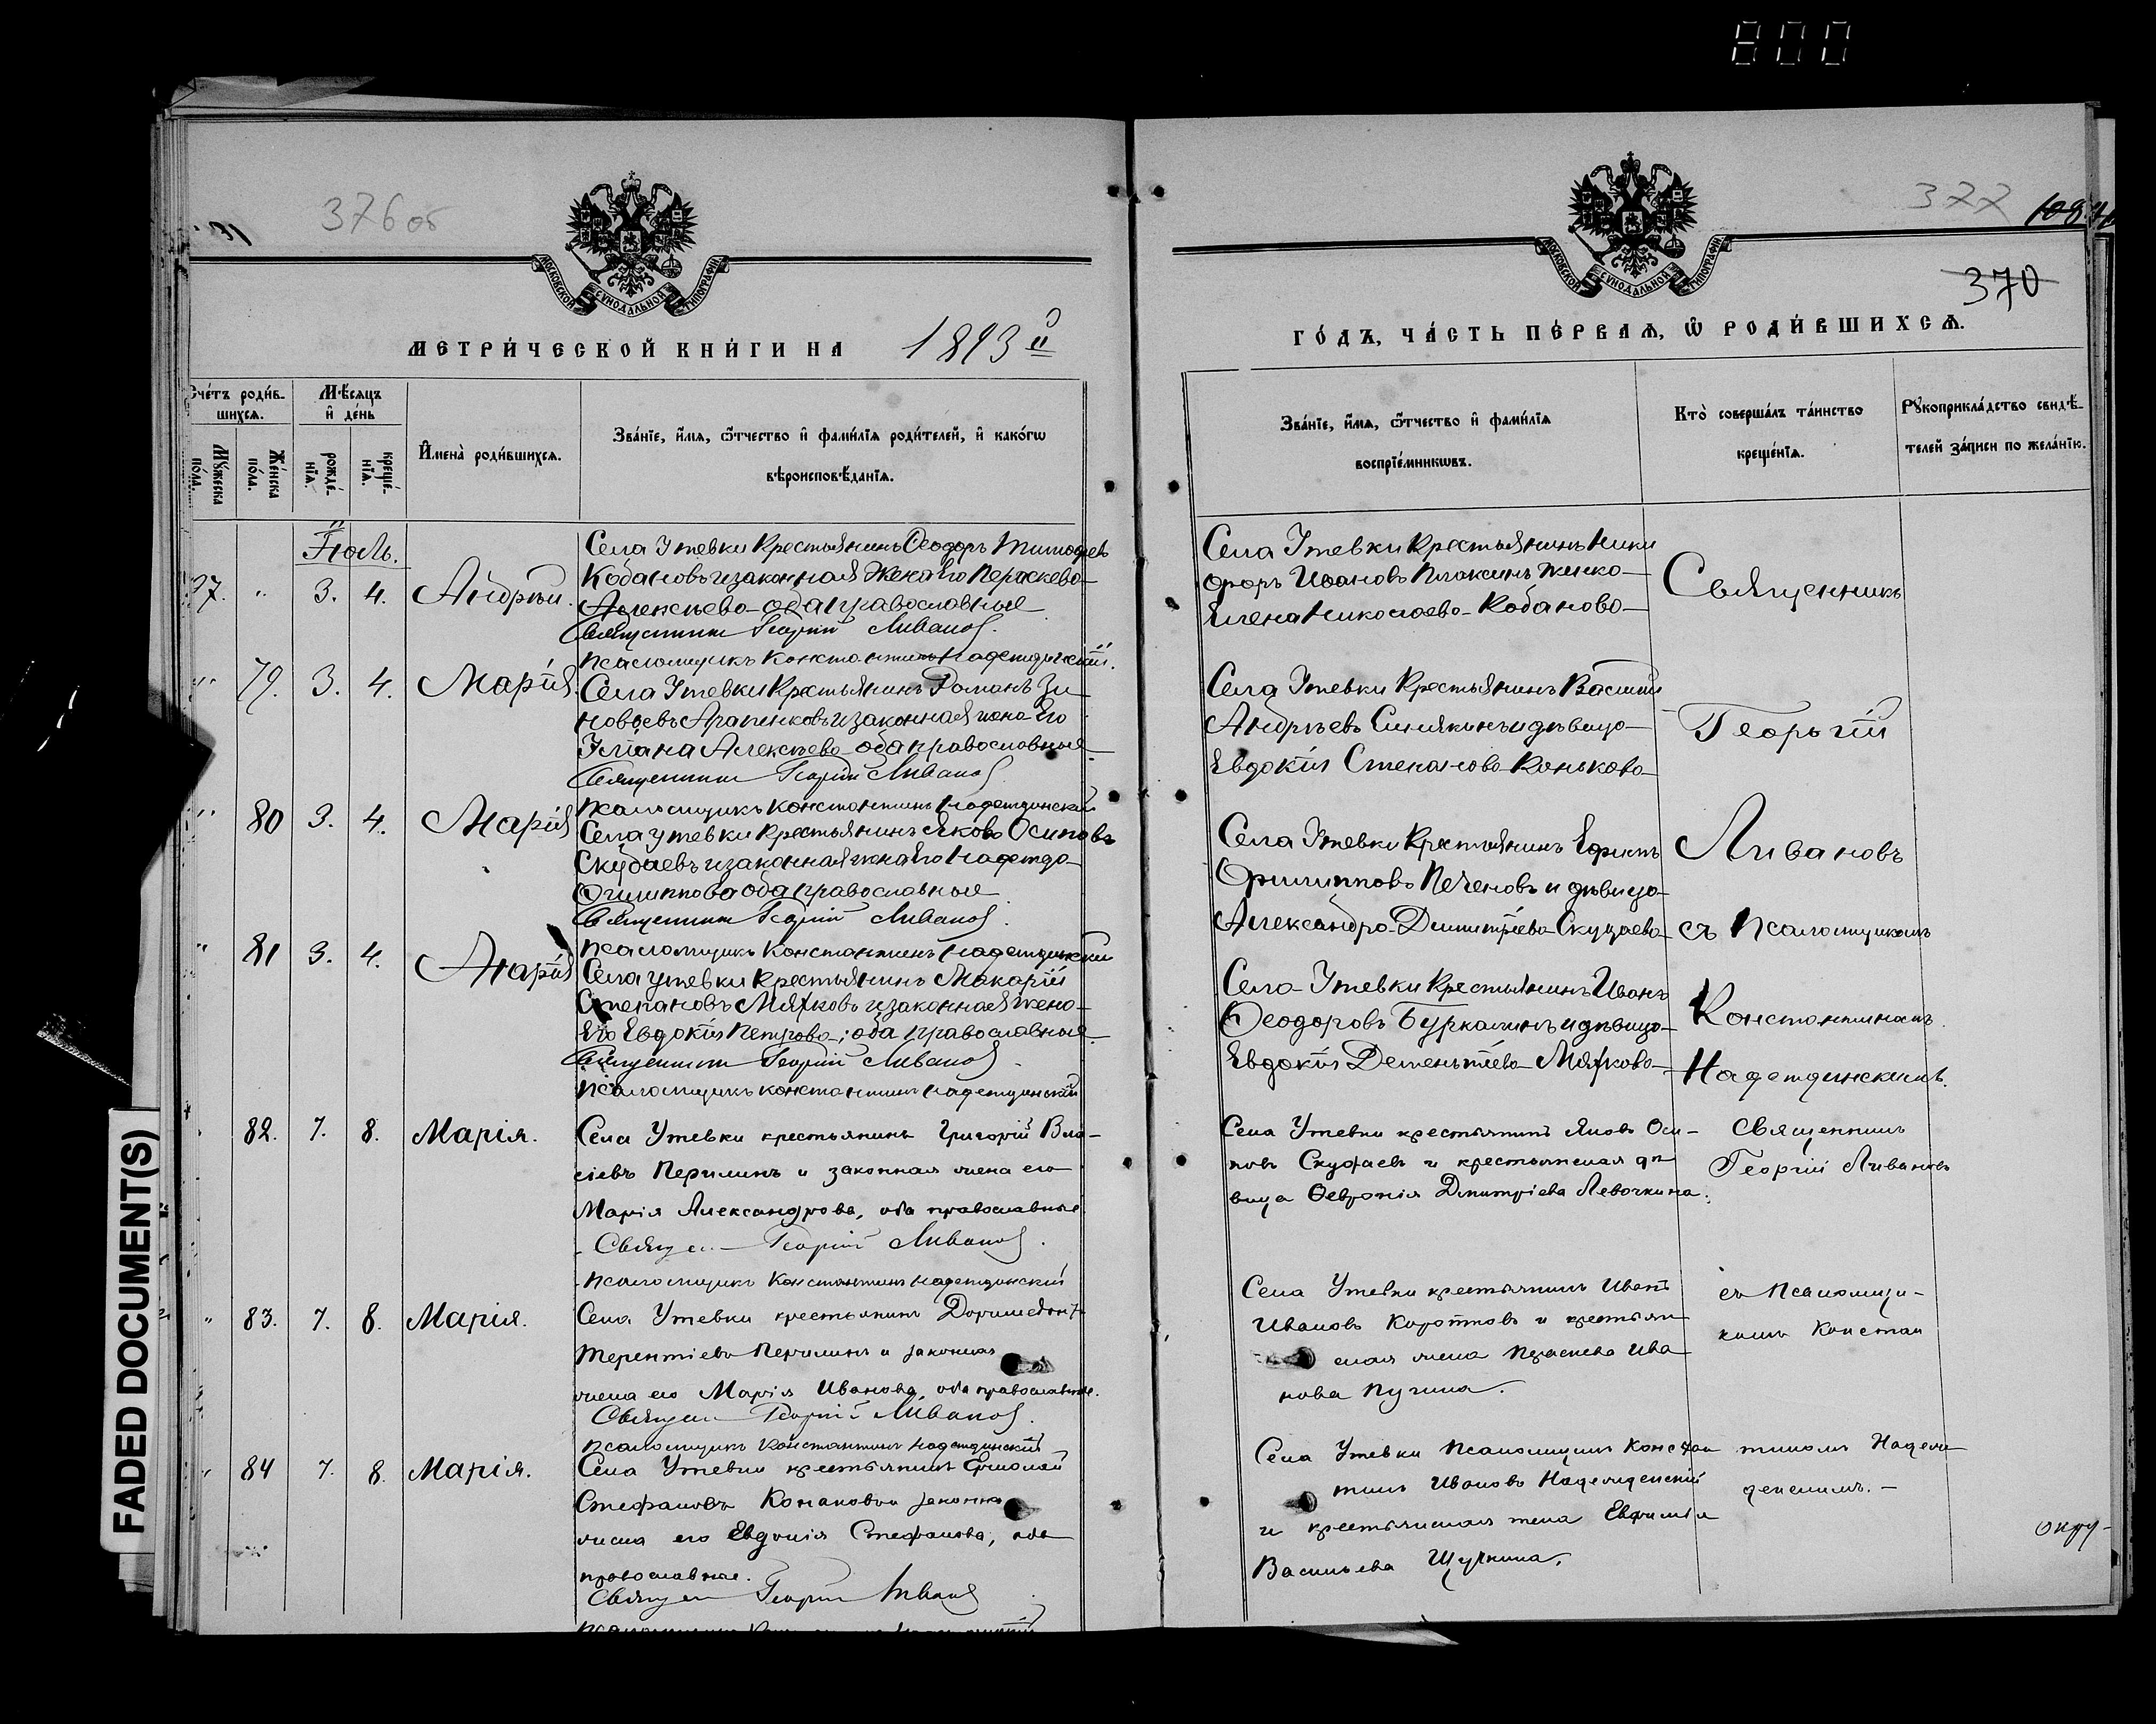 800
376 об
377
370
МОСКОВСКОЙ СѴНОДАЛЬНОЙ ТИПОГРАФІИ
МОСКОВСКОЙ СѴНОДАЛЬНОЙ ТИПОГРАФІИ
МЕТРИ́ЧЕСКОЙ КНИ́ГИ НА 1893й
ГО́ДЪ, ЧА́СТЬ ПЕ́РВАѦ, Ѡ҆ РОДИ́ВШИХСѦ.
Счéтъ роди́в-
шихсѧ.
Мꙋ́жеска
по́ла.
Же́нска
по́ла.
Мѣ́сѧцъ
и҆ де́нь
рожде́-
нїѧ.
креще́-
нїѧ.
И҆мена̀ роди́вшихсѧ.
Зва́нїе, и҆́мѧ, ѻ҆́тчество и҆ фами́лїѧ роди́телей, и҆ како́гѡ
вѣроисповѣ́данїѧ.
Зва́нїе, и҆́мѧ, ѻ҆́тчество и҆ фами́лїѧ
воспрїе́мникѡвъ.
Кто̀ соверша́лъ та́инство
креще́нїѧ.
Рꙋкоприкла́дство свидѣ́-
телей за́писи по жела́нїю.
Іюль.
37. " 3. 4. Андрей.
Села Утевки Крестьянинъ Ѳеодоръ Тимофеев
Кобановъ и законная Жена Его Пераскева
Алексѣева оба православные
Священникъ Георгій Ливановъ.
Псаломщикъ Константинъ Надеждинскій.
Села Утевки Крестьянинъ Ники
форъ Ивановъ Плаксинъ Женка
Елена Николаева Кобанова
Священникъ
" 79. 3. 4. Марія.
Села Утевки Крестьянинъ Романъ Зи
новьевъ Арапенковъ и законная жена Его
Уліана Алексѣева оба православные
Священникъ Георгій Ливановъ
Псаломщикъ Константинъ Надеждинскій
Села Утевки Крестьянинъ Василій
Андрѣевъ Синякинъ и дѣвица
Евдокія Степанова Конькова
Георгій
" 80 3. 4. Марія
Села утевки Крестьянинъ Яковъ Осиповъ
Скубаевъ и законная жена Его Надежда
Филиппова оба православные
Священникъ Георгій Ливановъ.
Псаломщикъ Константинъ Надеждинскій
Села Утевки Крестьянинъ Ефимъ
Филипповъ Печеновъ и дѣвица
Александра Димитріева
Ливановъ
съ Псаломщикомъ
" 81 3. 4. Марія
Села утевки Крестьянинъ Макарій
Степановъ Мяхковъ и законная жена
Его Евдокія Петрова; оба православные
Священникъ Георгій Ливановъ
Псаломщикъ Константинъ Надеждинскій
Села Утевки Крестьянинъ Иванъ
Ѳеодоровъ Буркалинъ и дѣвица
Евдокія Деменьтіева Мяхкова
Константиномъ
Надеждинскимъ.
82. 7. 8. Марія.
Села Утевки крестьянинъ Григорій Вла-
сіевъ Перилинъ и законная жена его
Марія Александрова, оба православные
Священ Георгій Ливановъ.
Псаломщикъ Константинъ Надеждинскій
Села Утевки крестьянинъ Яковъ Оси-
повъ Скуфаевъ и крестьянская дѣ
вица Ѳевронія Дмитріева Левочкина.
Священникъ
Георгій Ливановъ
" 83. 7. 8. Марія.
Села Утевки крестьянинъ Доримедонтъ
Терентіевъ Перилинъ и законная
жена его Марія Иванова, оба православные.
Священ Георгій Ливановъ.
Псаломщикъ Константинъ Надеждинскій
Села Утевки крестьянинъ Иванъ
Ивановъ Коротковъ и крестьян
ская жена Параскева Ива
нова Пугина.
съ Псаломщи-
комъ Констан
" 84 7. 8. Марія.
Села Утевки крестьянинъ Ермолай
Стефановъ Конаковъ и законная
жена его Евдокія Стефанова, оба
православные.
Священ Георгій Ливановъ
Села Утевки Псаломщикъ Констан
тинъ Ивановъ Надежденскій
и крестьянская жена Евфимія
Васильева Щукина.
тиномъ Надеж
денскимъ. -
окру-
FADED DOCUMENT(S)